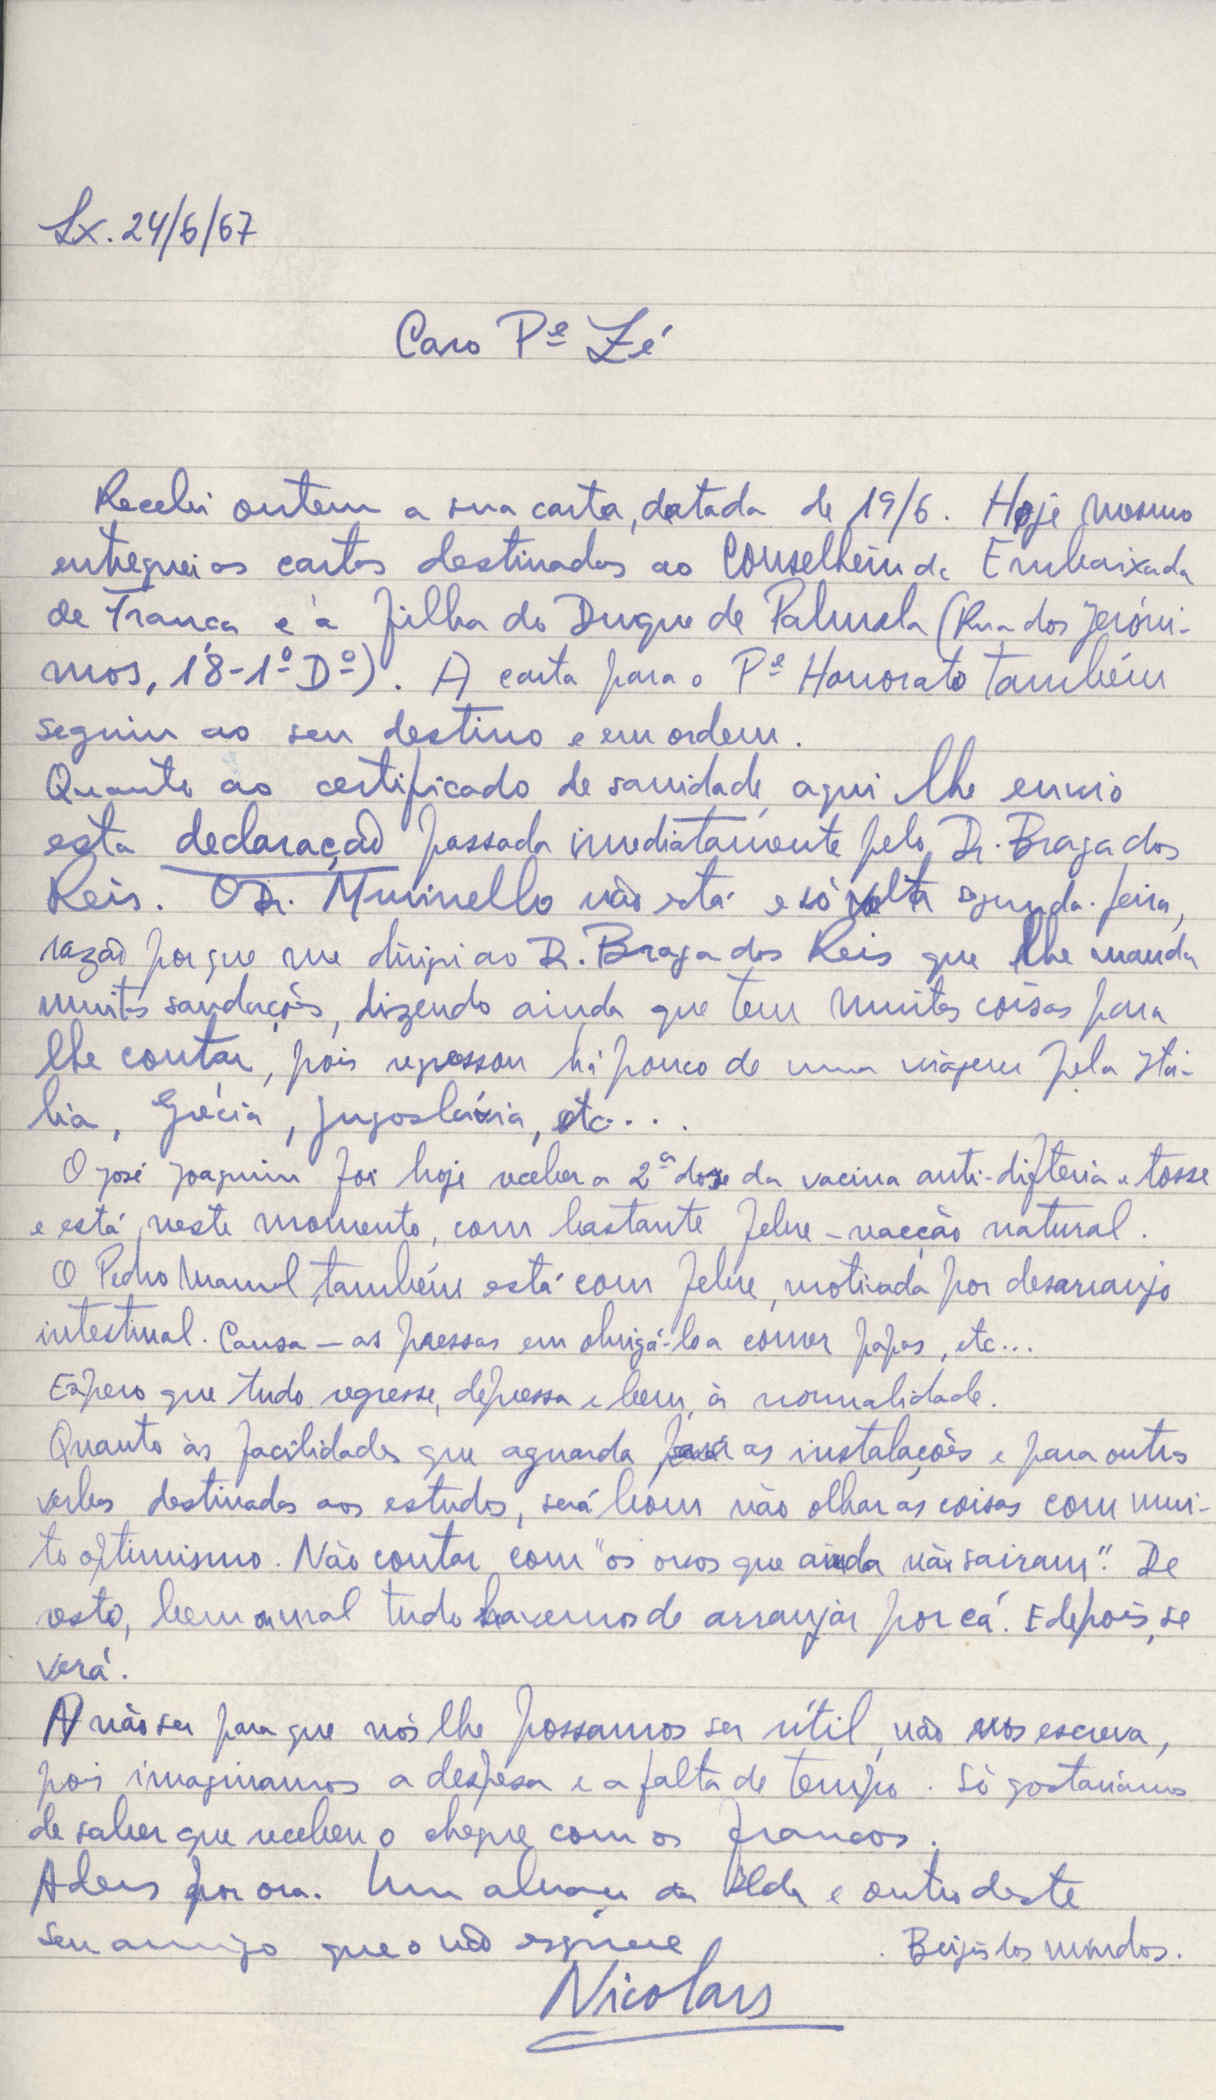 Lx. 24/6/67
Caro Pe Zé
Recebi ontem a sua carta, datada de 19/6. Hoje mesmo
entreguei as cartas destinadas ao Conselheiro da Embaixada
de França e à filha do Duque de Palmela (Rua dos Jeróni-
mos, 18-1º Dº). A carta para o Pe Honorato também
seguiu ao seu destino e em ordem.
Quanto ao certificado de sanidade, aqui lhe envio
esta declaração passada imediatamente pelo Dr. Braga dos
Reis. O Dr. Murinello não está e só volta segunda-feira,
razão porque me dirigi ao Dr. Braga dos Reis que lhe manda
muitas saudações, dizendo ainda que tem muitas coisas para
lhe contar, pois regressou há pouco de uma viagem pela Itá-
lia, Grécia, Jugoslávia, etc...
O José Joaquim foi hoje receber a 2ª dose da vacina anti-difteria e tosse
e está, neste momento, com bastante febre - reacção natural.
O Pedro Manuel também está com febre, motivada por desarranjo
intestinal. Causa - as pressas em obrigá-lo a comer papas, etc...
Espero que tudo regresse, depressa e bem, à normalidade.
Quanto às facilidades que aguarda para as instalações e para outras
verbas destinadas aos estudos, será bom não olhar as coisas com mui-
to optimismo. Não contar com "os ovos que ainda não sairam". De
resto, bem ou mal tudo havemos de arranjar por cá. E depois, se
verá.
A não ser para que nós lhe possamos ser útil, não nos escreva,
pois imaginamos a despesa e a falta de tempo. Só gostaríamos
de saber que recebeu o cheque com os francos.
Adeus por ora. Um abraço da Ilda e outro deste
seu amigo que o não esquece
. Beijos dos miúdos.
Nicolau